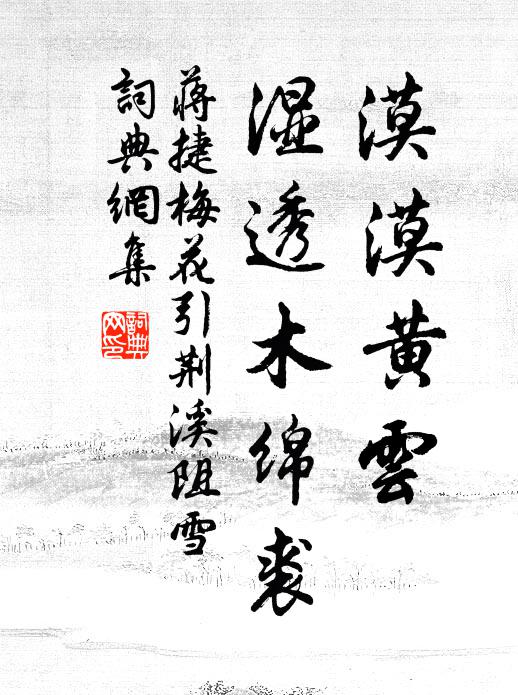 漠漠黄雲
湿透木绵裘
蒋捷梅花引荆溪阻雪
詞典網集
詞典